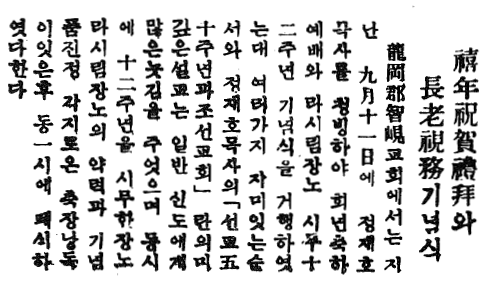 禧年祝賀禮拜와
長老視務기념식
龍岡郡智峴교회에서는 지
난 九月十一日에 정재호
목사를 청빙하야 희년축하
예배와 마시림장노 시무十
二주년 기념식을 거행하엿
는대 여러가지 자미잇는순
서와 정재호목사의「선교五
十주년과조선교회」란의미
깊은설교는 일반 신도에게
많은늣김을 주엇으며 동시
에 十二주년을 시무한장노
마시림장노의 약력과 기념
품진정 각지로온 축장낭독
이잇은후 동一시에 폐쇠하
엿다한다